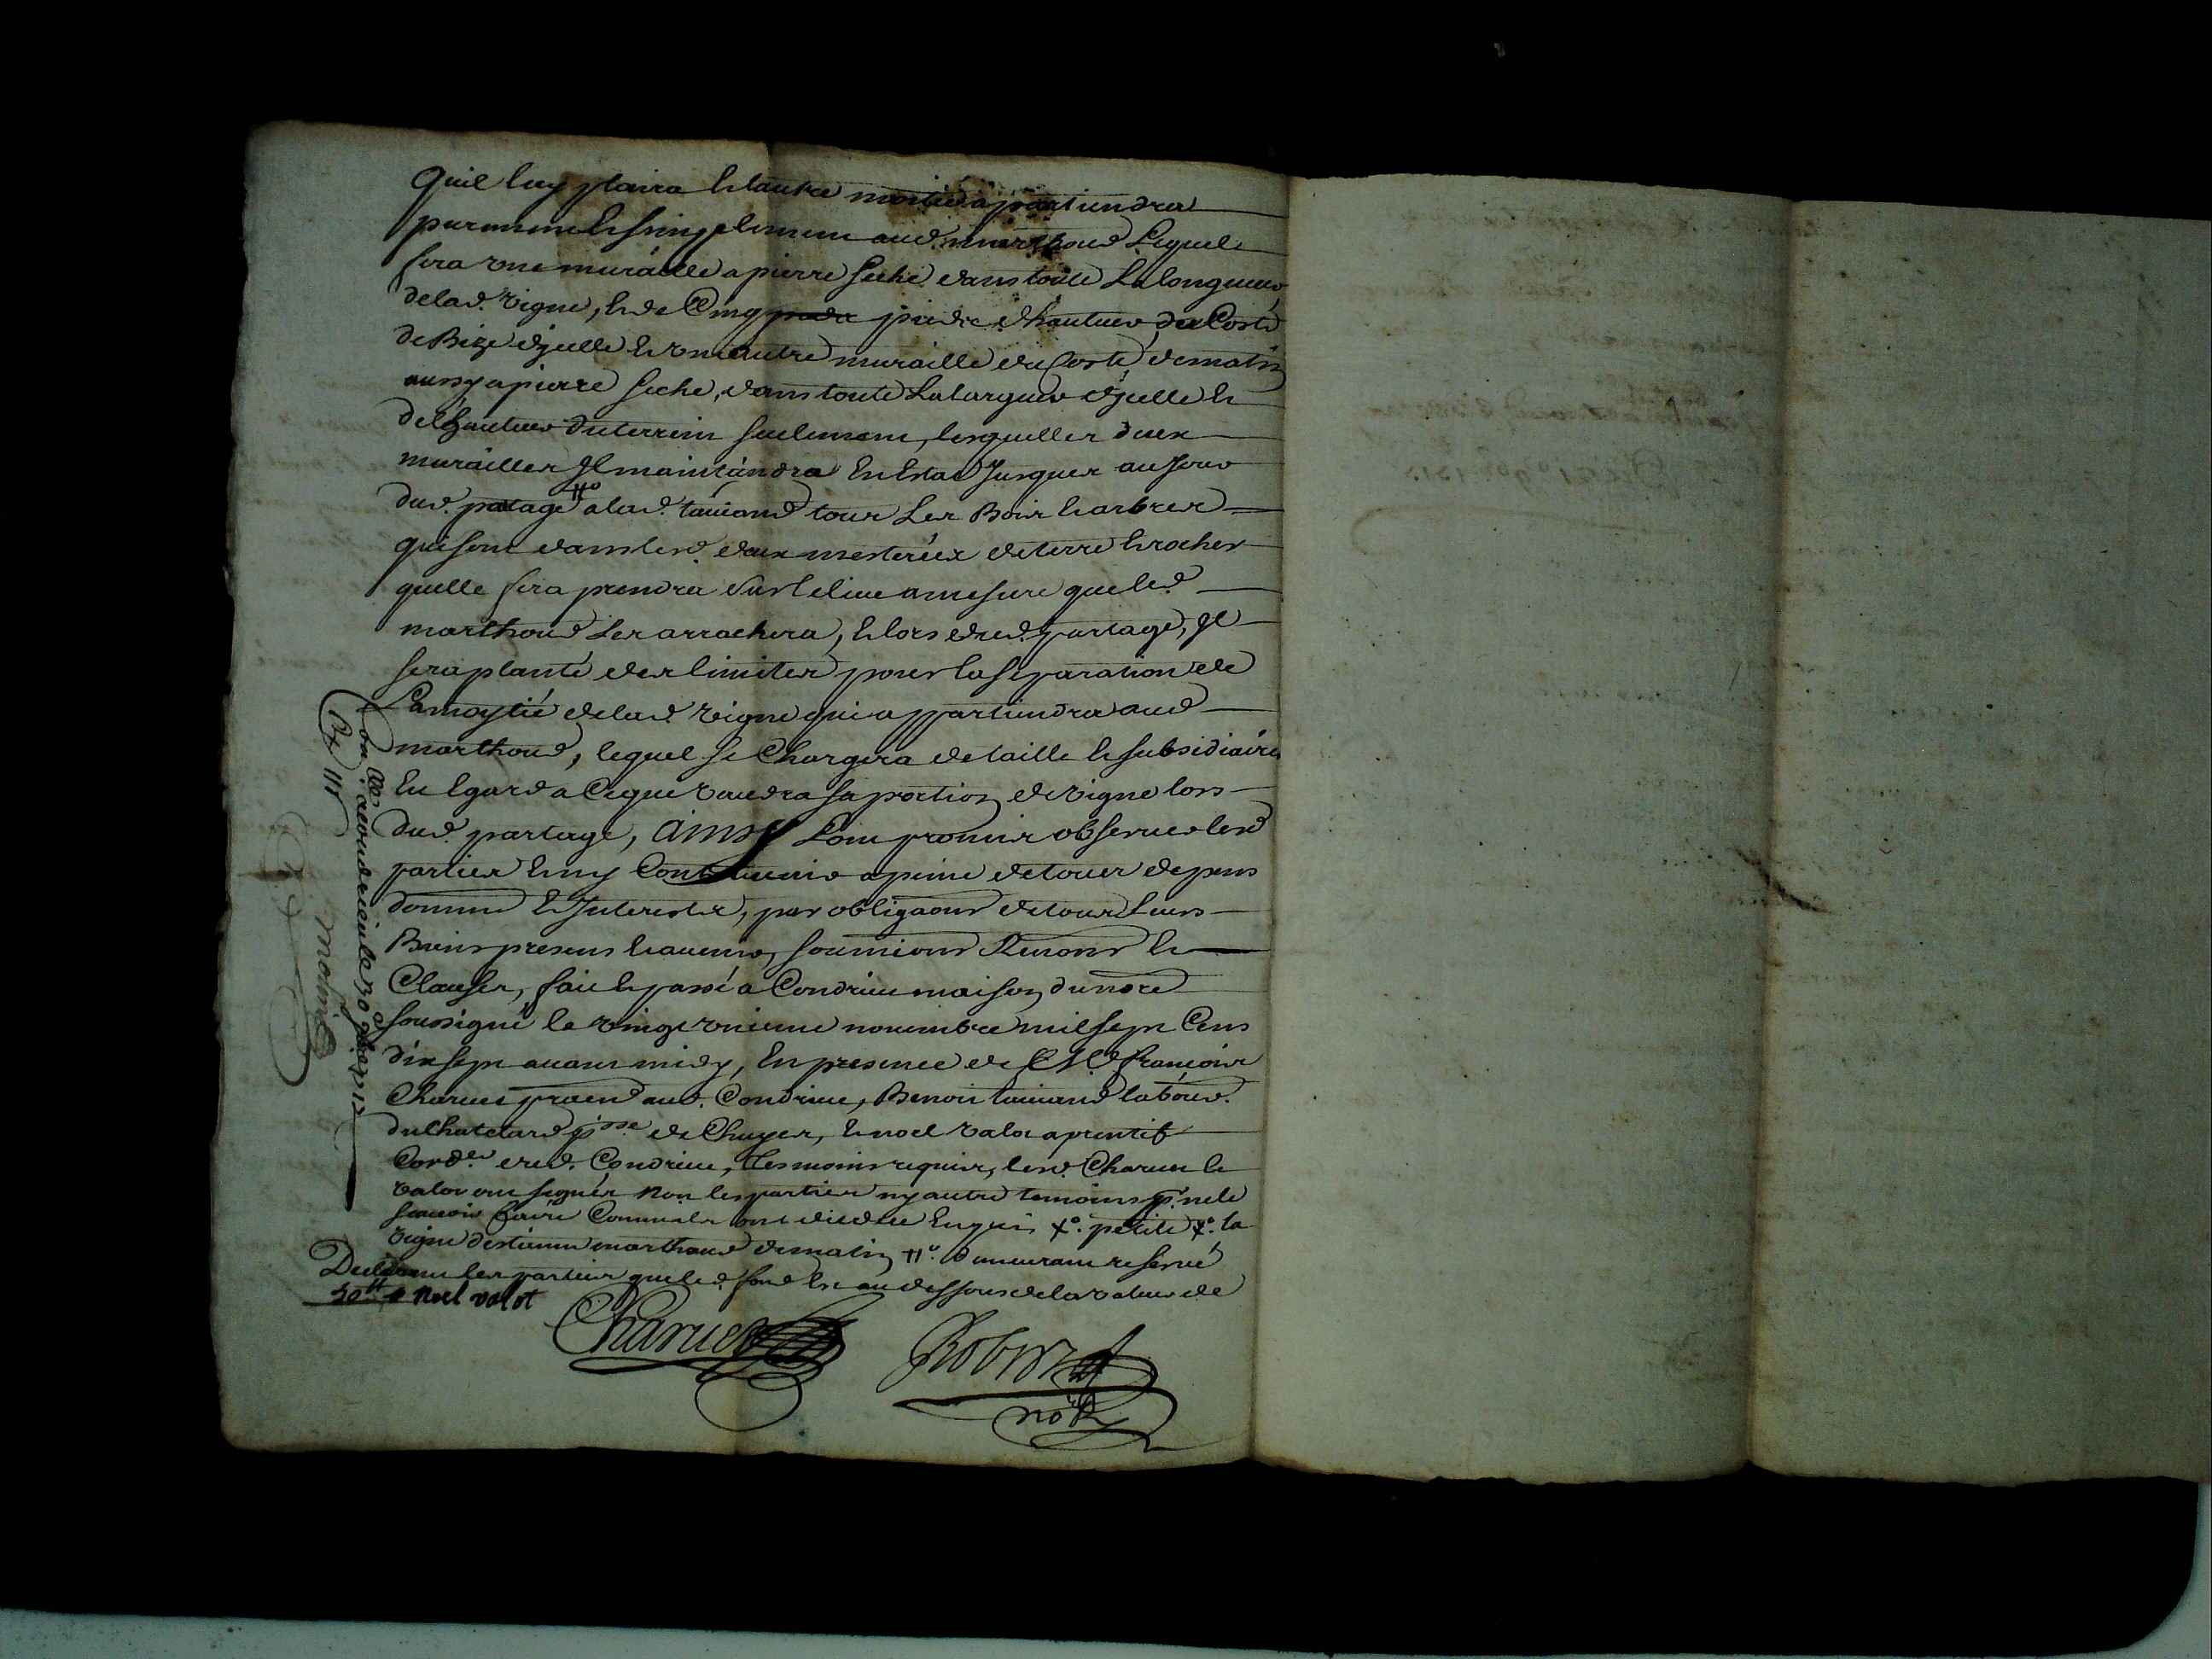 quil luy plaira et lautre moitié apartiendra
purement et simplement aud. marthoud Lequel
fera une muraille a pierre seche dans toute La longueur
de lad. vigne, et de Cinq piedz dhauteur du Costé
de Bize dycelle et une autre muraille du Costé de matin
aussy a pierre seche, dans toute La largeur dycelle et
de lhauteur du terrein seulement, lesquelles deux
murailles Il maintiendra En Estat Jusques au Jour
dud. partage a lad. tauiand tous Les Bois et arbres
qui sont dans lesd. deux mesterées de terre et rocher
quelle fera prendre sur le lieu a mesure que led.
marthoud Les arrachera, et lors dud. partage, Il
sera planté des limites pour la separation de
La moytié de lad. vigne qui appartiendra aud.
marthoud, lequel se Chargera de taille et subsidiaires
Eu Egard a Ce que vaudra sa portion de vigne lors
dud. partage, ainsy Lont promis observer lesd.
parties et ny Contrevenir a peine de tous depens
domm. et Interests, par obligaons de tous Leurs
Biens presens et avenir, soumions Renons et
Clauses, fait et passé a Condrieu maison du nore
soussigné le vingt unieme novembre mil sept Cens
dix sept avant midy, En presence de Me françois
Charuet praen aud. Condrieu, Benoit tauiand labour.
du Chatelard psse de Chuyer, et noel valot aprentif
Cord.er dud. Condrieu, tesmoins requis, lesd. Charuet et
valot ont signés non les parties ny autre temoins p. ne le
scavoir faire Comme ils ont dit de ce Enquis +o. petite +o. la
vigne destienne marthoud de matin ++o. demeurant reservé
Declarant les parties que led. fond Est au dessous de la valeur de
50tt noel valot
Charuet
Robert
nore